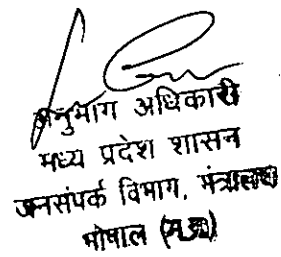 अनुभाग अधिकारी
मध्य प्रदेश शासन
जनसंपर्क विभाग, मंत्रालय
भोपाल (म.प्र.)